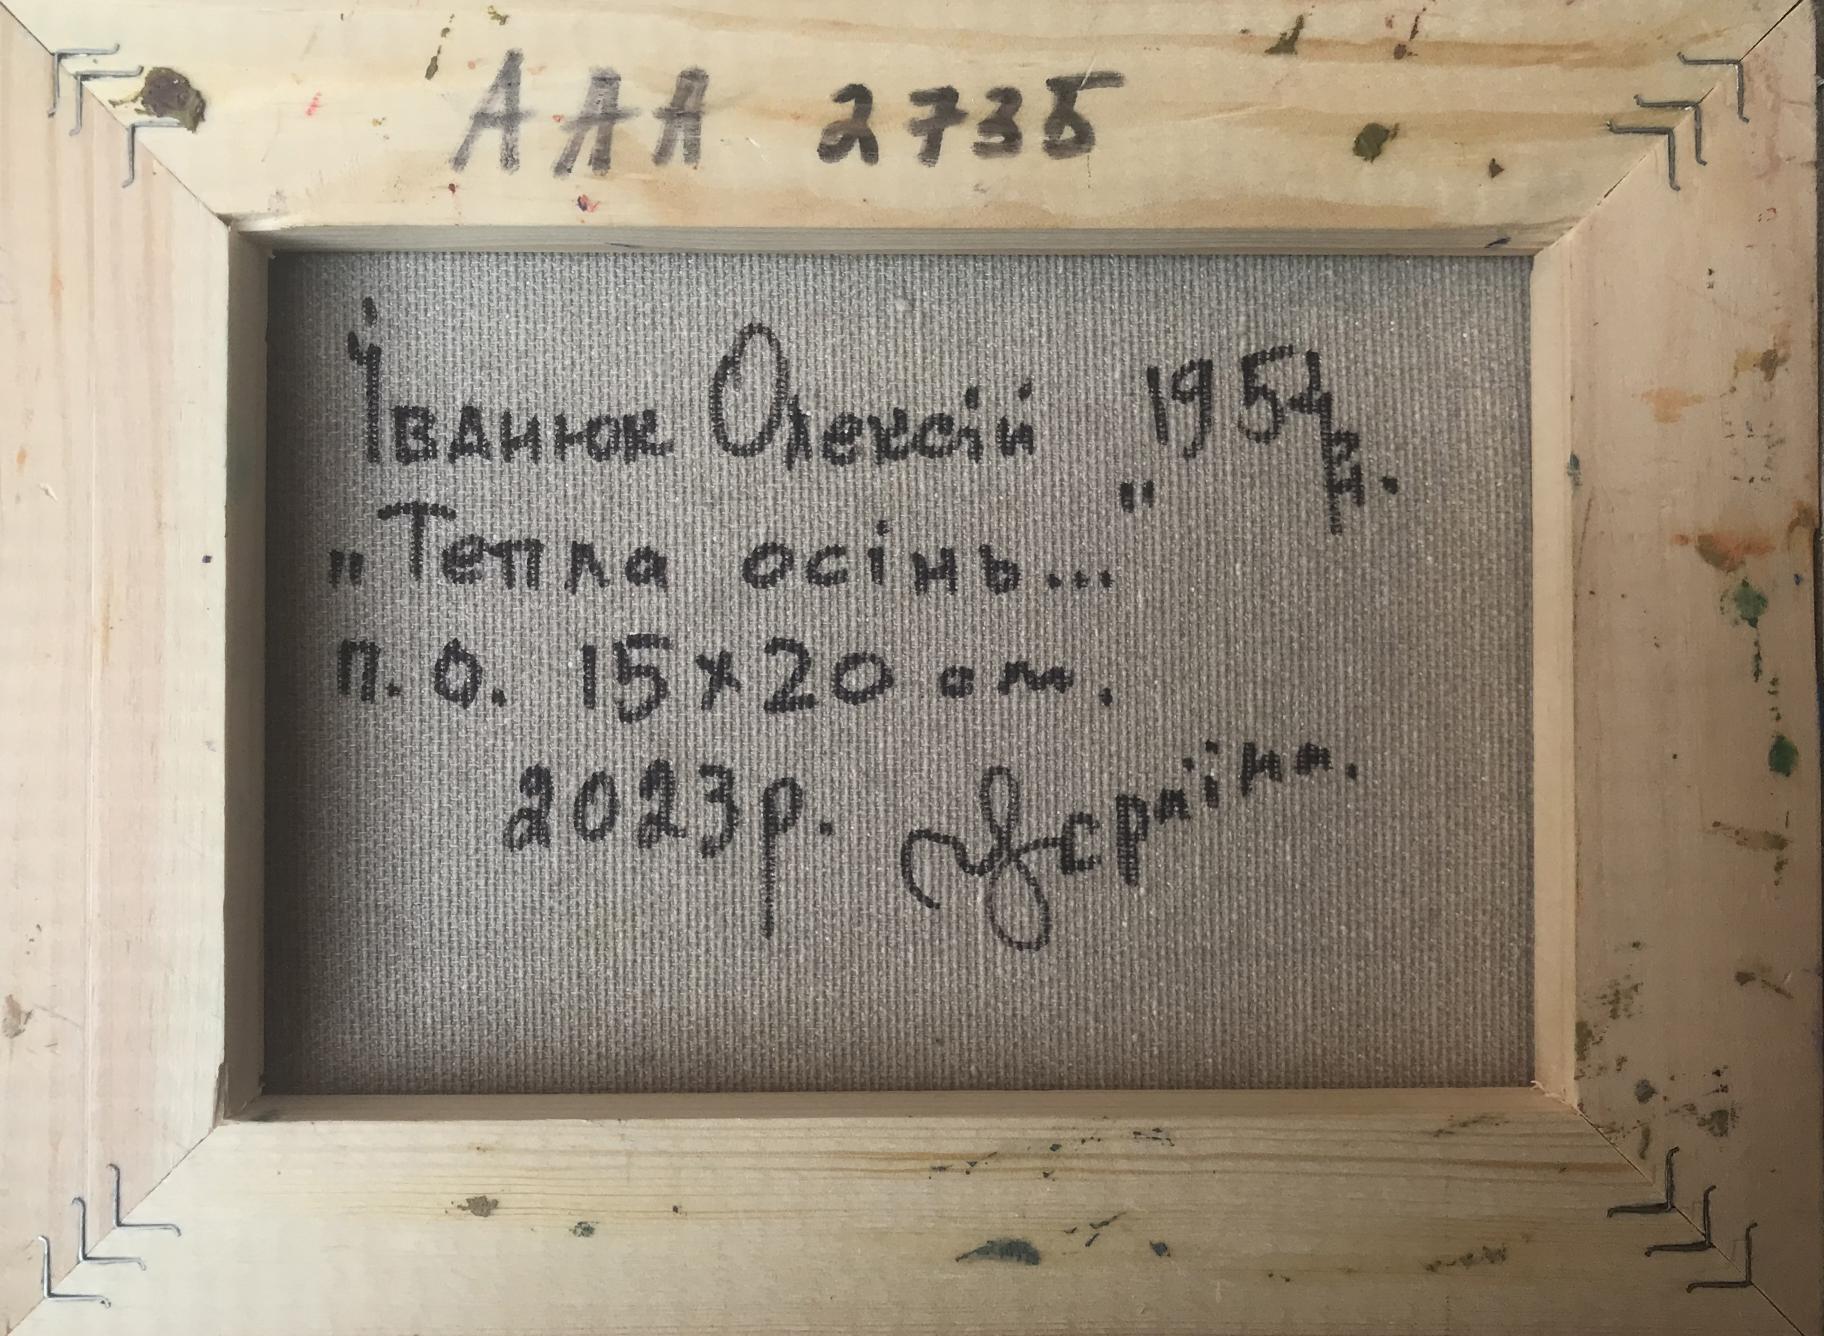 ААА 2735
Іванюк Олексій 1954 н.
„Тепла осінь..."
п.о. 15х20 см.
2023р. Україна.